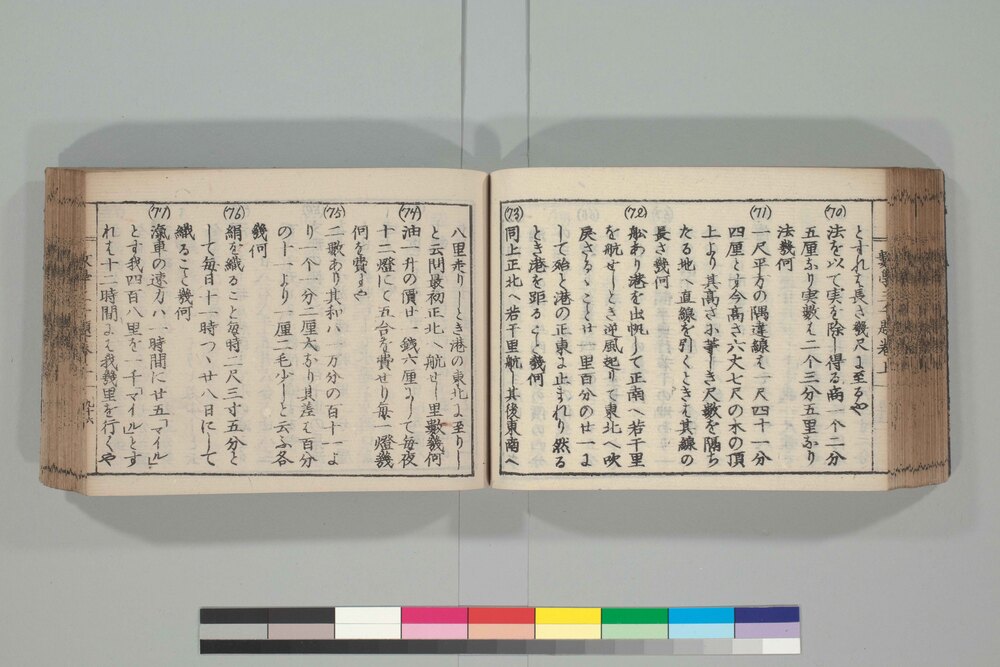 とすれは長さ幾尺に至るや
(70)
法を以て実を除し得る商一个二分
五厘なり実数は二个三分五里なり
法幾何
(71)
一尺平方の隅違線は一尺四十一分
四厘とす今高さ六丈七尺の木の頂
上より其高さに等しき尺数を隔ち
たる地へ直線を引くときは其線の
長さ幾何
(72)
船あり港を出帆して正南へ若干里
を航せしとき逆風起りて東北へ吹
戻さるゝことは一里百分の廿一に
して殆と港の正東に止まれり然る
とき港を距ること幾何
(73)
同上正北へ若干里航し其後東南へ
八里走りしとき港の東北に至りし
と云問最初正北へ航せし里數幾何
(74)
油一升の價廿一銭六厘にして毎夜
十二燈にて五合を費せり毎一燈幾
何を費すや
(75)
二數あり其和ハ一万分の百十一よ
り一个一分二厘大なり其差は百分
の十一より一厘二毛少しと云ふ各
幾何
(76)
絹を織ること毎時二尺三寸五分と
して毎日十一時つゝ廿八日にして
織ること幾何
(77)
滊車の速力ハ一時間に廿五「マイル」
とす我四百八里を一千「マイル」とす
れは十二時間に我幾里を行くや